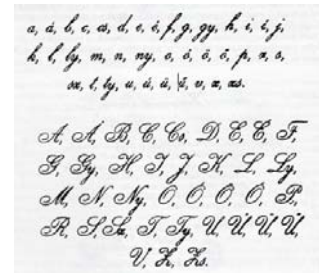 a, á, b, c, cs, d, e, é, f, g, gy, h, i, í, j,
k, l, ly, m, n, ny, o, ó, ö, ő, p, r, s,
sz, t, ty, u, ú, ü, ű, v, z, zs.
A, Á, B, C, Cs, D, E, É, F,
G, Gy, H, I, J, K, L, Ly,
M, N, Ny, O, Ó, Ö, Ő, P,
R, S, Sz, T, Ty, U, Ú, Ü, Ű,
V, Z, Zs.